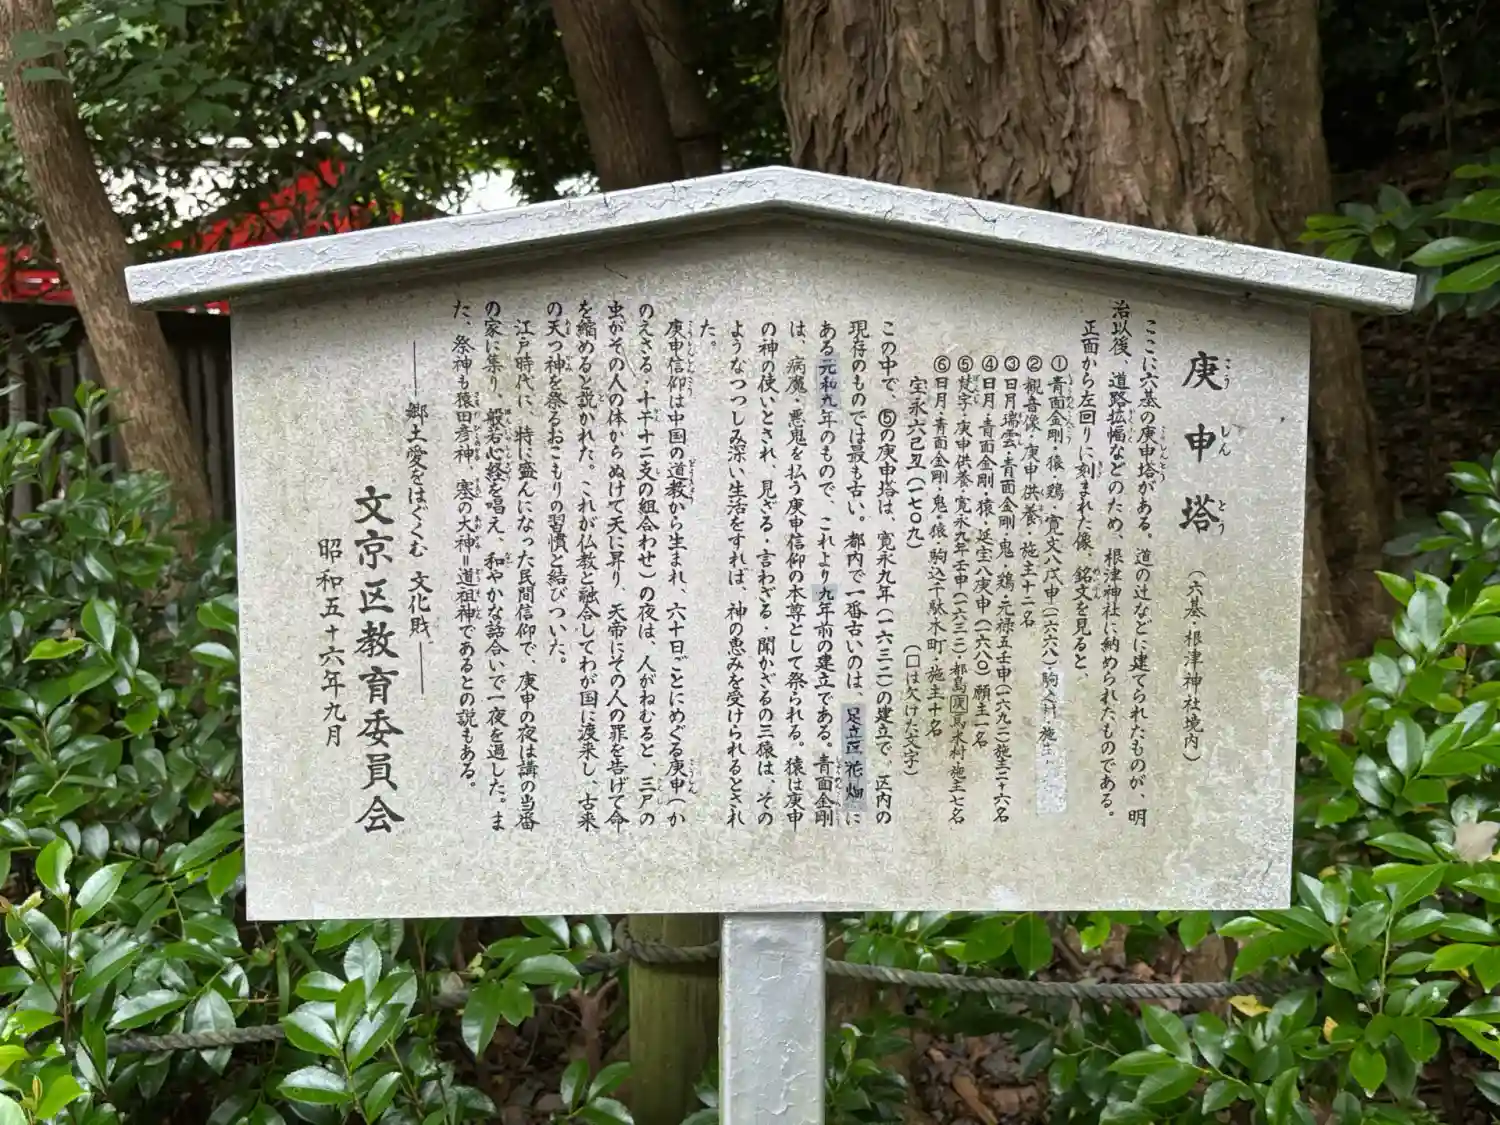 庚申塔 (六基・根津神社境内)
ここに六基の庚申塔がある。道の辻などに建てられたものが、明
治以後、道路拡幅などのため、根津神社に納められたものである。
正面から左回りに刻まれた像、銘文を見ると、
①青面金剛・猿・鶏・寛文八戊申(一六六八)駒込村・施主
②観音像・庚申供養・施主十二名
③日月瑞雲・青面金剛・鬼・鶏・元禄五壬申(一六九二)施主二十六名
④日月・青面金剛・猿・延宝八庚申(一六八〇)願主一名
⑤梵字・庚申供養・寛永九年壬申(一六三二)都島庚馬米村・施主七名
⑥日月・青面金剛・鬼・猿・駒込千駄木町・施主十名
宝永六己丑(一七〇九) (□は欠けた文字)
この中で、⑤の庚申塔は、寛永九年(一六三二)の建立で、区内の
現存のものでは最も古い。都内で一番古いのは、足立区花畑に
ある元和九年のもので、これより九年前の建立である。青面金剛
は、病魔・悪鬼を払う庚申信仰の本尊として祭られる。猿は庚申
の神の使いとされ、見ざる・言わざる・聞かざるの三猿は、その
ようなつつしみ深い生活をすれば、神の恵みを受けられるとされ
た。
庚申信仰は中国の道教から生まれ、六十日ごとにめぐる庚申(か
のえさる・十干十二支の組合わせ)の夜は、人がねむると、三尸の
虫がその人の体からぬけて天に昇り、天帝にその人の罪を告げて命
を縮めると説かれた。これが仏教と融合してわが国に渡来し、古来
の天つ神を祭るおこもりの習慣と結びついた。
江戸時代に、特に盛んになった民間信仰で、庚申の夜は講の当番
の家に集り、般若心経を唱え、和やかな話合いで一夜を過した。ま
た、祭神も猿田彦神、塞の大神=道祖神であるとの説もある。
――郷土愛をはぐくむ 文化財――
文京区教育委員会
昭和五十六年九月